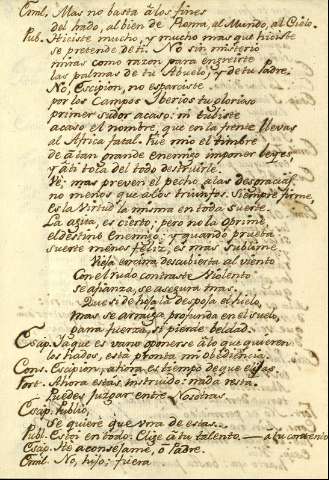 Emil. Mas no basta à los fines
del hado, al bien de Roma, al Mundo, al Cielo.
Pub. Hiciste mucho, y mucho mas que hiciste
se pretende de ti. No sin misterio
miras como razon para
las palmas de tu Abuelo, y de tu Padre.
No, Escipion, no esparciste
por los Campos Iberios tu glorioso
primer sudor acaso: ni tubiste
acaso el nombre, que en la frente llevas
al Africa fatal. Fue mio el timbre
de à tan grande enemigo imponer leyes,
y à ti toca del todo destruirle.
Vé; mas preven el pecho à las desgracias
no menos que à los triunfos. Siempre firme,
es la Virtud la misma en toda suerte.
La agita, es cierto; pero no la oprime
el destino Enemigo; y quando prueba
suerte menos feliz, es mas sublime
Vieja encina descubierta al viento
Con el rudo contraste violento
se afianza, se asegura mas.
Que si de hoja la despoja el hielo,
mas se arraiga profunda en el suelo,
gana fuerza, si pierde beldad.
Escip. Ya que es vano oponerse à lo que quieren
los hados, està pronta mi obediencia.
Cons. Escipion, ahora es tiempo de que elijas.
Fort. Ahora estàs instruido: nada resta.
Puedes juzgar entre Nosotras
Escip. Publio,
Se quiere que una de estas
Publ. Estoi en todo. Elige à tu talento. — à tu contento
Escip. No aconsejame, ò Padre.
Emil. No, hijo; fuera